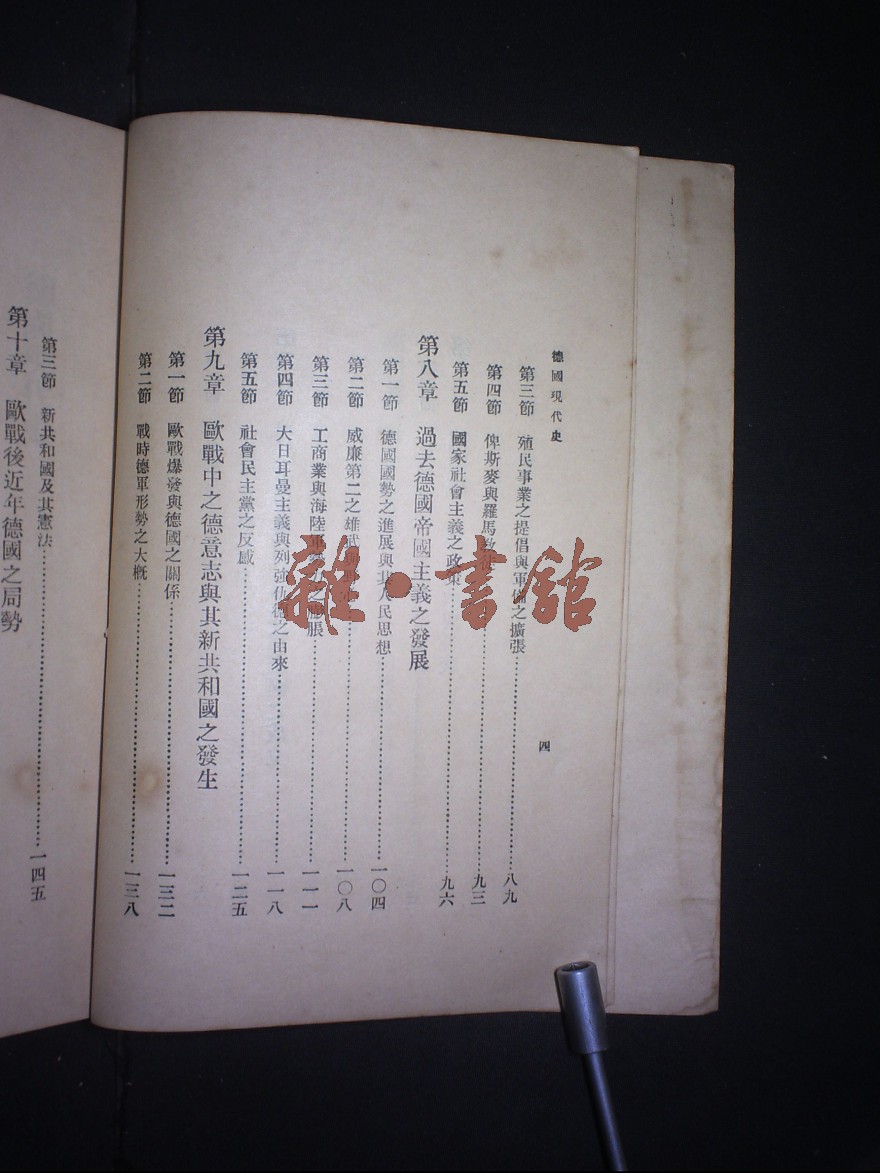 德國現代史
四
第三節 殖民事業之提倡與軍備之擴張……八九
第四節 俾斯麥與羅馬教……九三
第五節 國家社會主義之政策……九六
第八章 過去德國帝國主義之發展
第一節 德國國勢之進展與其人民思想……一〇四
第二節 威廉第二之雄武……一〇八
第三節 工商業與海陸軍勢力之膨脹……一一一
第四節 大日耳曼主義與列強仇德之由來……一一八
第五節 社會民主黨之反感……一二五
第九章 歐戰中之德意志與其新共和國之發生
第一節 歐戰爆發與德國之關係……一三二
第二節 戰時德軍形勢之大概……一三八
第三節 新共和國及其憲法……一四五
第十章 歐戰後近年德國之局勢
雜·書館